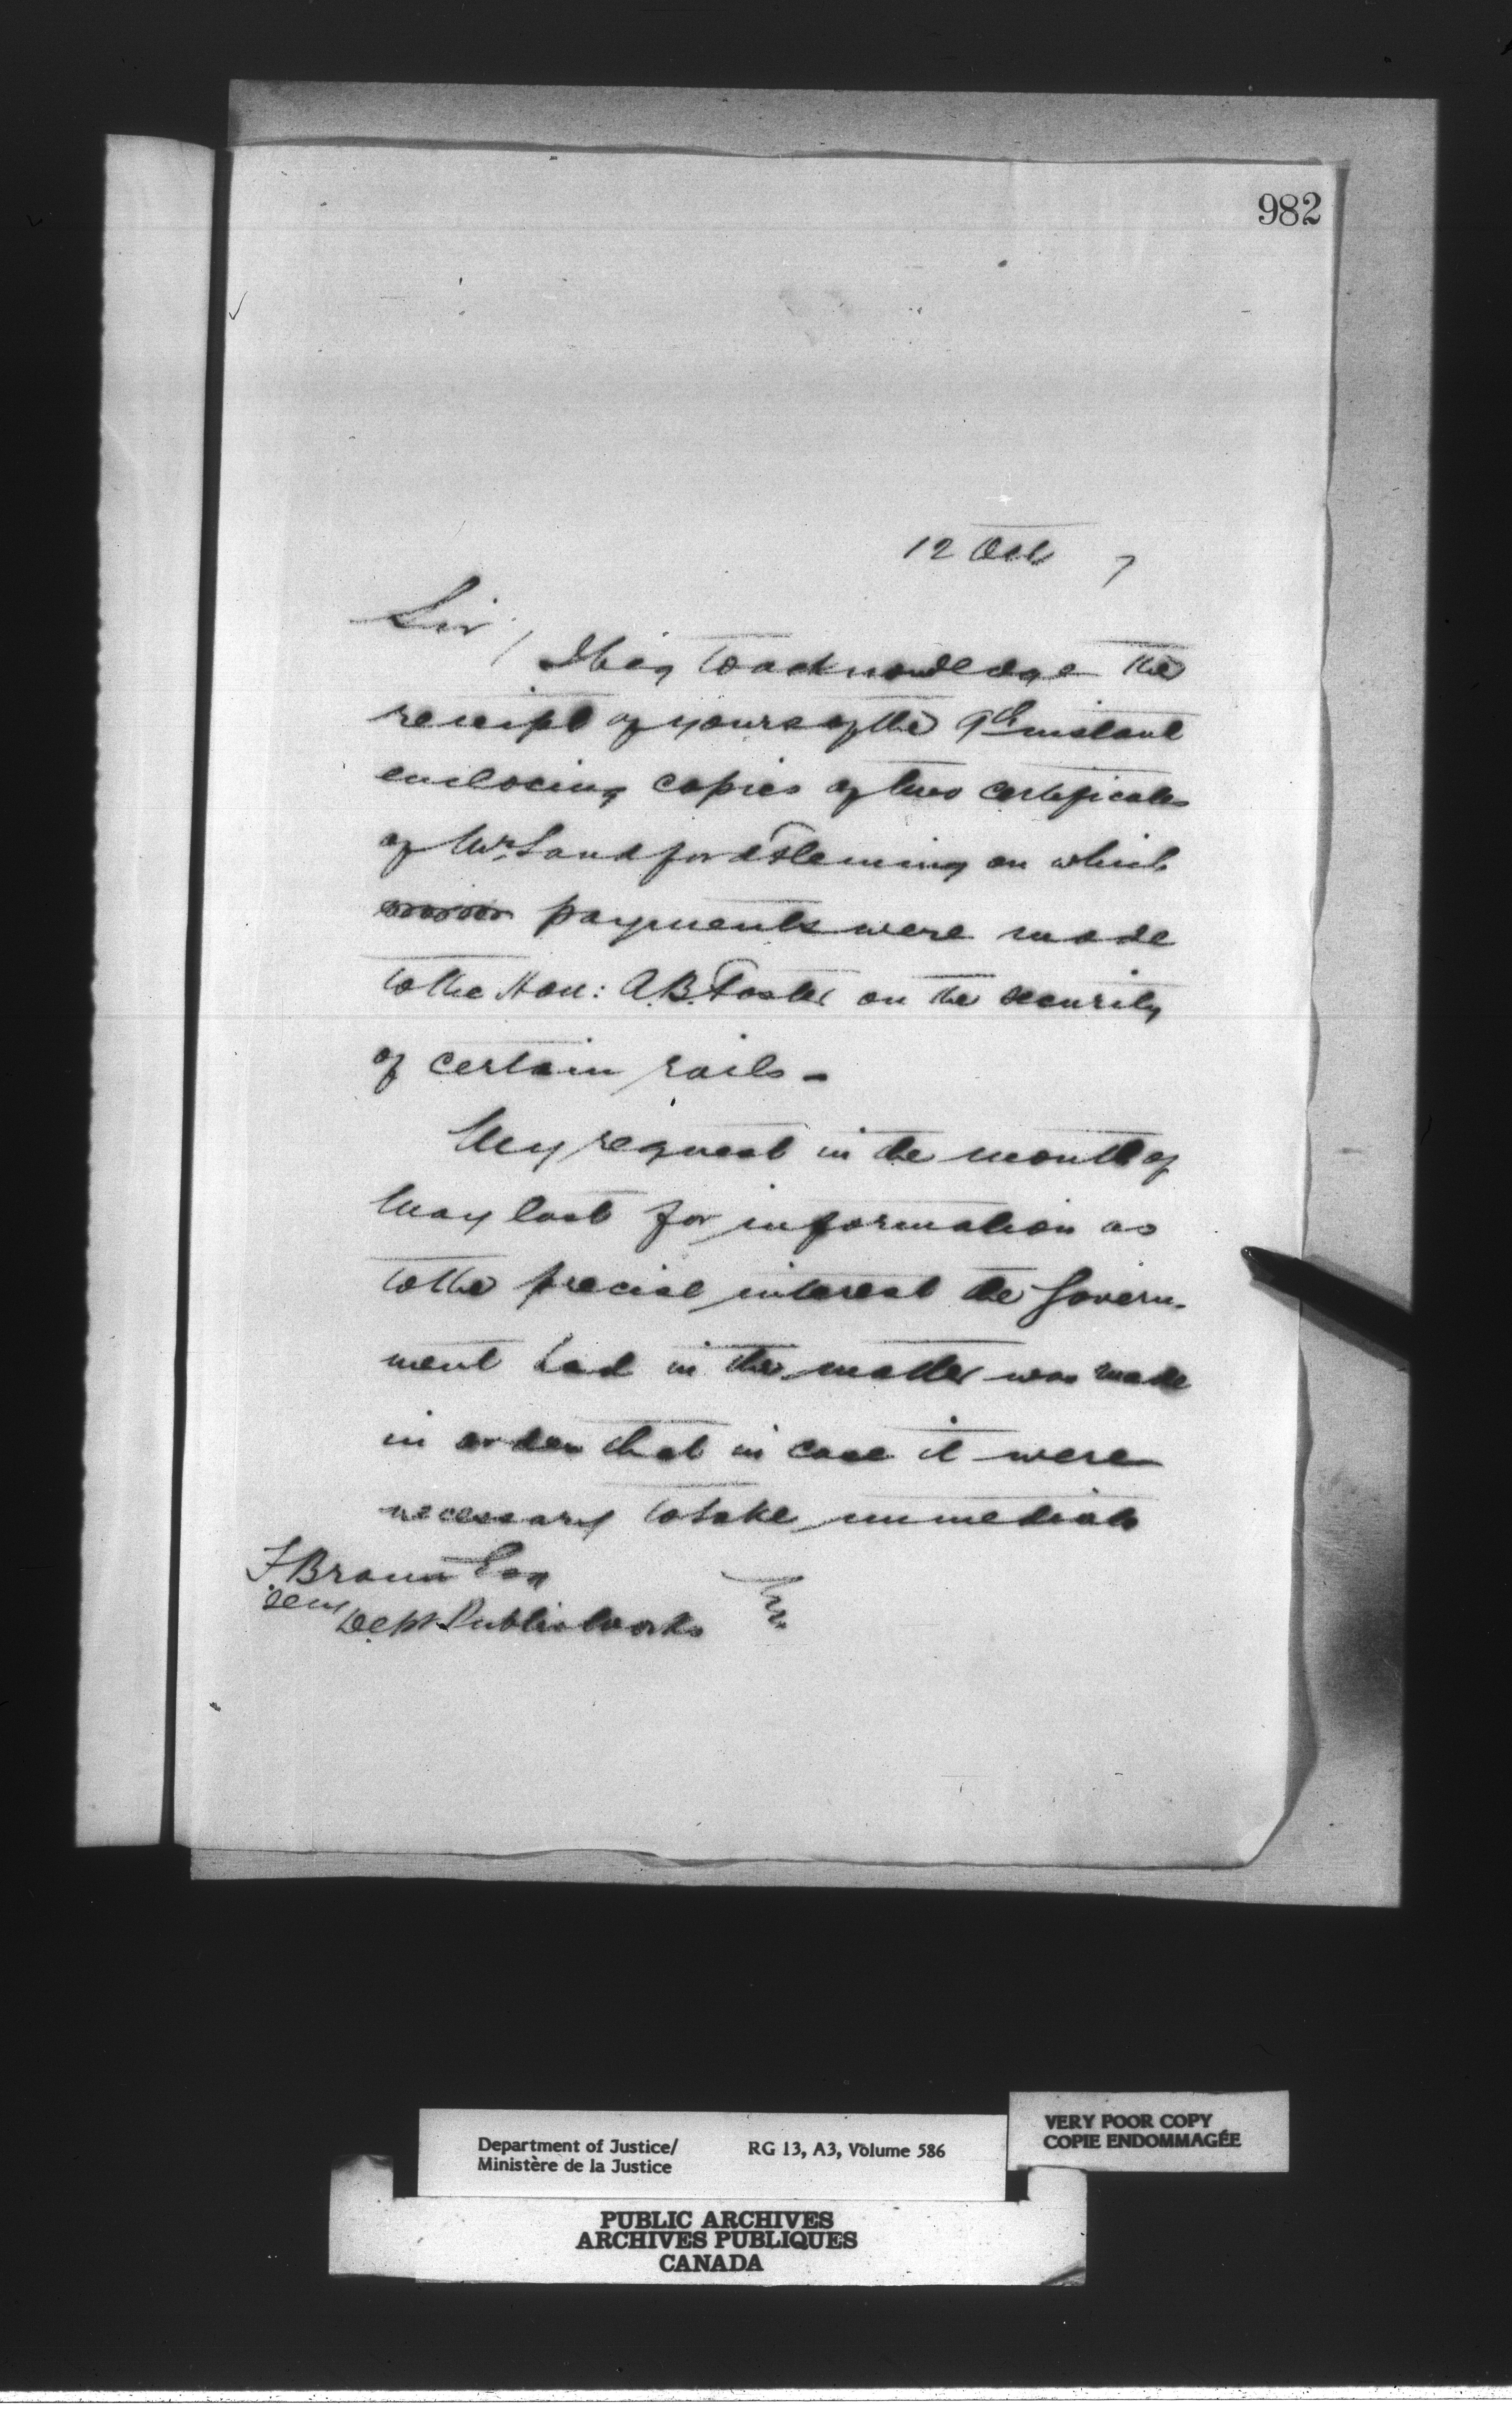 982
12 Oct 7
Sir /
I beg to acknowledge the
receipt of yours of the 9th instant
enclosing copies of two certificates
of Mr. Sandford Fleming on which
payments were made
to the Hon: A.B. Foster on the security
of certain rails -
My request in the month of
May last for information as
to the precise interest the Govern-
ment had in the matter was made
in order that in case it were
necessary to take immediate
F. Braun Esq
Secy
Dept Public Works
Department of Justice/
Ministère de la Justice
RG 13, A3, Volume 586
VERY POOR COPY
COPIE ENDOMMAGÉE
PUBLIC ARCHIVES
ARCHIVES PUBLIQUES
CANADA